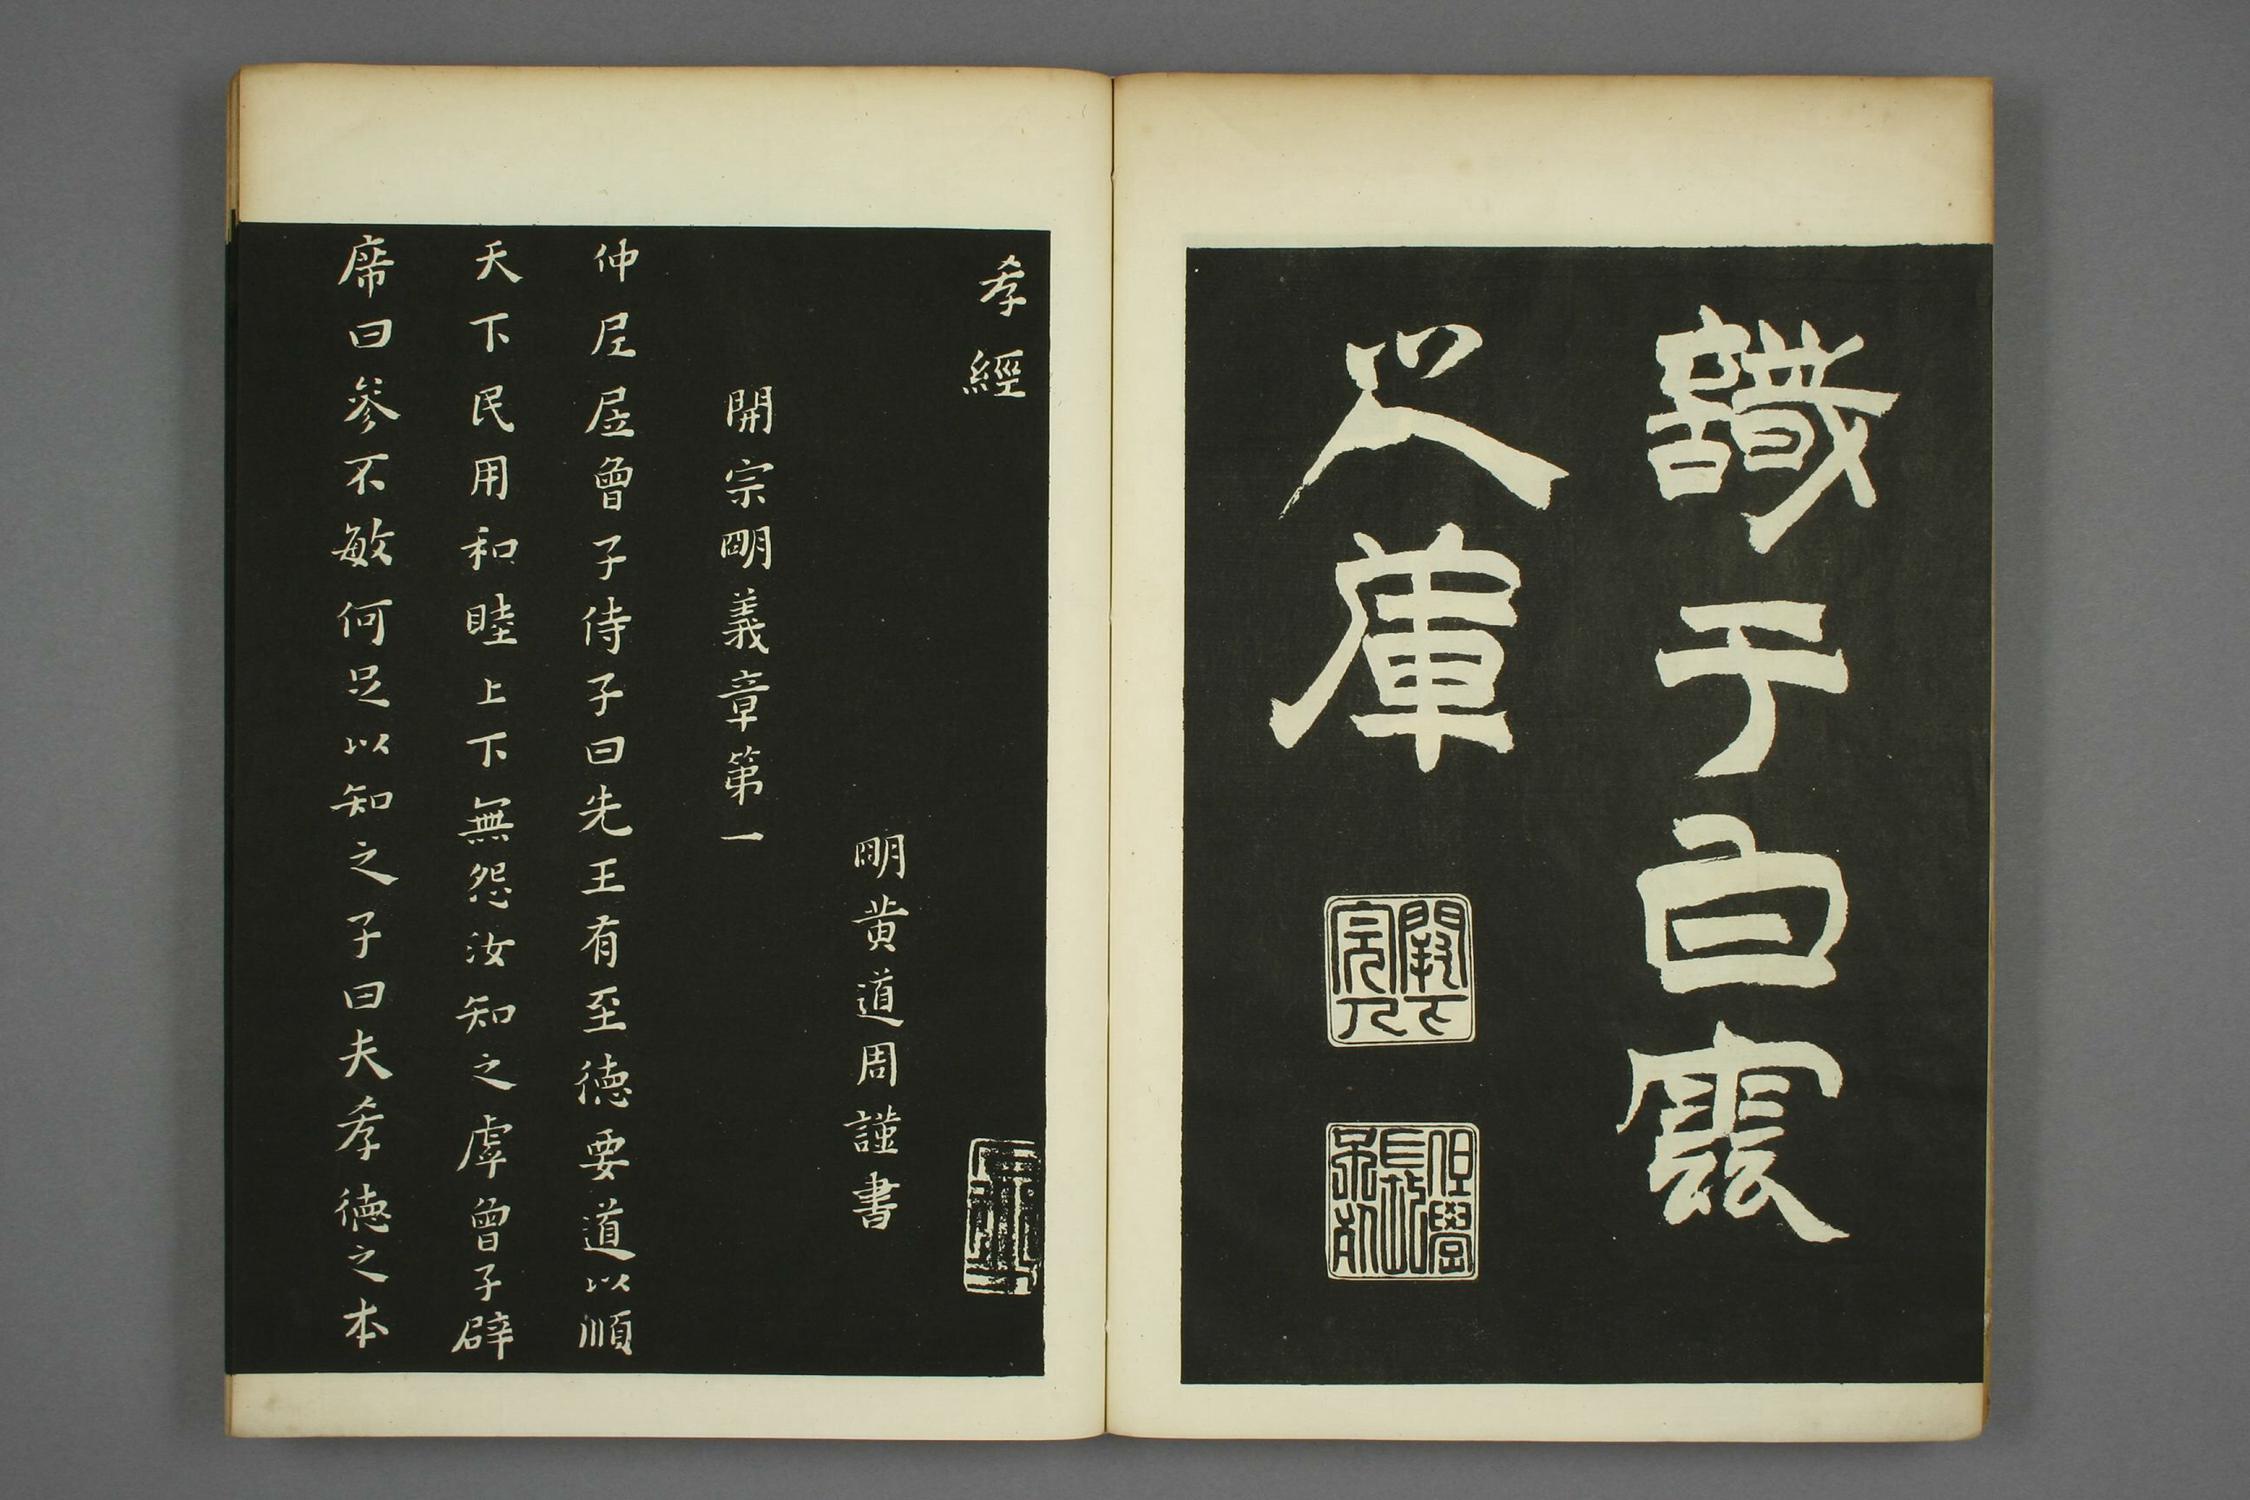 識于白雲
之庫
孝經
明黄道周謹書
開宗明義章第一
仲尼凥曾子侍子曰先王有至德要道以順
天下民用和睦上下無怨汝知之虖曾子辟
席曰參不敏何足以知之子曰夫孝德之本